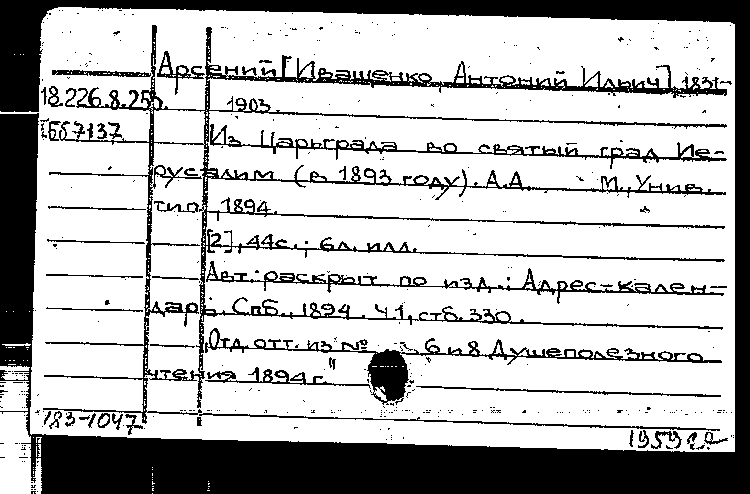 Арсений [Иващенко, Антоний Ильич], 1831-
18.226.8.255. 1903.
Из Царьграда во святый град Ие-
русалим (в 1893 году). А.А. М., Унив.
тип., 1894.
[2], 44с.; 6л. илл.
Авт. раскрыт по изд.: Адрес-кален-
дарь. Спб., 1894. Ч.1, стб. 330.
"Отд. отт. из № 6 и 8 Душеполезного
чтения 1894 г."
183-1047